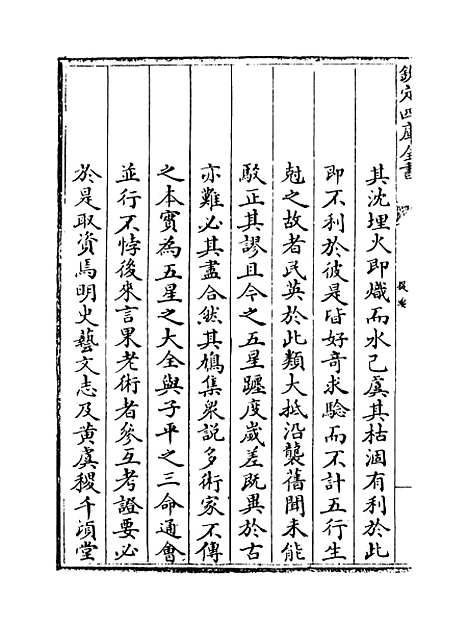 欽定四庫全書
提要
其沈埋火即熾而水已虞其枯涸有利於此
即不利於彼是皆好奇求驗而不計五行生
尅之故者民英於此類大抵沿襲舊聞未能
駁正其謬且今之五星躔度歲差既異於古
亦難必其盡合然其鳩集衆說多術家不傳
之本實為五星之大全與子平之三命通會
並行不悖後來言果老術者參互考證要必
於是取資焉明史藝文志及黄虞稷千頃堂